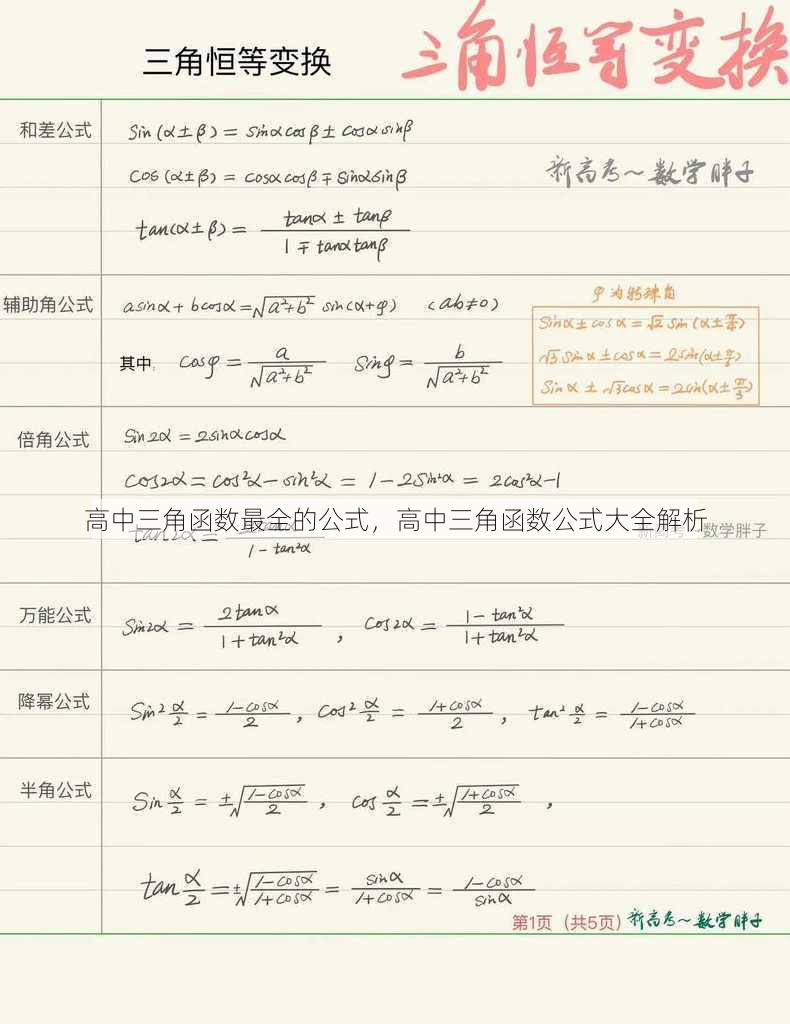 三角恒等变换
三角恒等变换
和差公式
sin(α±β) = sinαcosβ ± cosαsinβ
cos(α±β) = cosαcosβ ∓ sinαsinβ
新高考～数学胖子
tan(α±β) = (tanα ± tanβ)/(1 ∓ tanαtanβ)
辅助角公式
asinα + bcosα = √(a²+b²) sin(α+φ) (ab≠0)
其中: cosφ = a/√(a²+b²) sinφ = b/√(a²+b²)
φ为特殊角
sinα ± cosα = √2 sin(α±π/4)
√3 sinα ± cosα = 2sin(α±π/6)
sinα ± √3cosα = 2sin(α±π/3)
倍角公式
sin2α = 2sinαcosα
cos2α = cos²α − sin²α = 1 − 2sin²α = 2cos²α − 1
高中三角函数最全的公式，高中三角函数公式大全解析
新高考～数学胖子
tan2α = 2tanα/(1 − tan²α)
万能公式
sin2α = 2tanα/(1 + tan²α) , cos2α = (1 − tan²α)/(1 + tan²α)
降幂公式
sin²α/2 = (1−cosα)/2 , cos²α/2 = (1+cosα)/2 , tan²α/2 = (1−cosα)/(1+cosα)
半角公式
sinα/2 = ±√((1−cosα)/2) , cosα/2 = ±√((1+cosα)/2) ,
tanα/2 = ±√((1−cosα)/(1+cosα)) = sinα/(1+cosα) = (1−cosα)/sinα
第1页（共5页）新高考～数学胖子